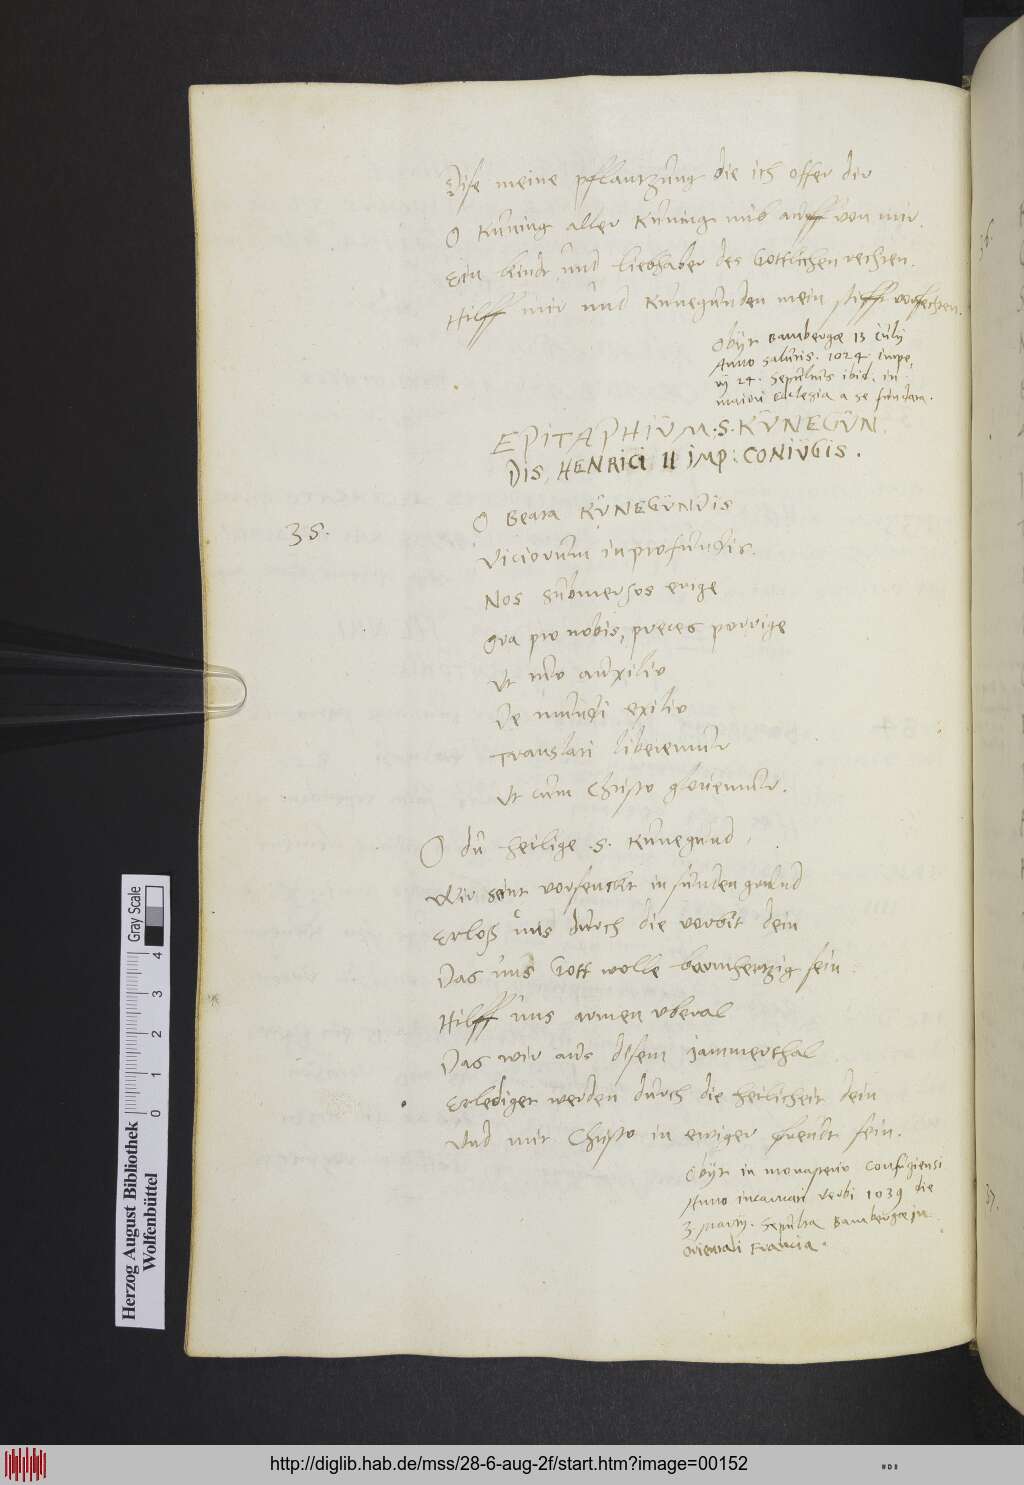 Dise meine pflantzung die ich offer dir
O Kůning aller Kůning nŭb auff von mir.
Ein kindt und liebhaber des Gottlichen rechten.
Hilff mir und Kunegunden mein stifft vorfechten.
Obijt Bambergæ 13 iulij
Anno salutis. 1024. impe,
rij 24. Sepultus ibid. in
maiori Ecclesia a se fundata.
EPITAPHIŬM. S. KŬNEGŬN,
DIS, HENRICI II IMP: CONIŬGIS.
35.
O Beata KŬNEGŬNDIS
Viciorum in profundis.
Nos submersos erige
Ora pro nobis, preces porrige
Ut tuo auxilio
De mundi exilio
Translati liberemur
Ut cum Christo gloriemur.
O du heilige .S. Kunegund,
Wir seint vorsenckt in sunden grund
Erloß uns durch die vorbit dein
Das uns Gott wolle barmhertzig sein
Hilff uns armen uberal
Das wir aus disem jammerthal
Erlediget werden durch die heilicheit dein
Und mit Christo in ewiger freudt sein.
Obijt in monasterio Confugiensi
Anno incarnati verbi 1039 die
3 Martij. Sepulta Bambergæ in
Orientali Francia.
36.
37.
Herzog August Bibliothek
Wolfenbüttel
0 1 2 3 4
Gray Scale
http://diglib.hab.de/mss/28-6-aug-2f/start.htm?image=00152